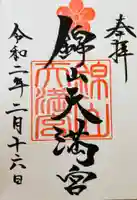 奉拝
錦山天満宮
令和二年二月十六日